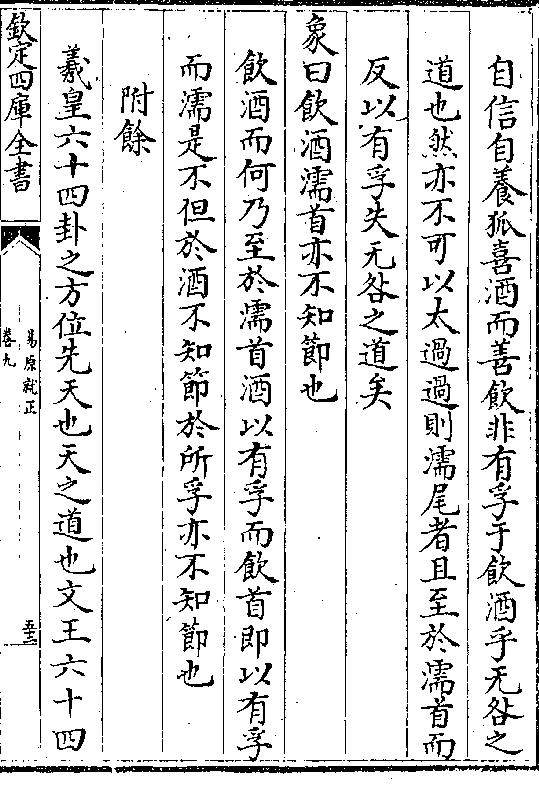 自信自養狐喜酒而善飲非有孚于飲酒乎无咎之
道也然亦不可以太過過則濡尾者且至於濡首而
反以有孚失无咎之道矣
象曰飲酒濡首亦不知節也
飲酒而何乃至於濡首酒以有孚而飲首即以有孚
而濡是不但於酒不知節於所孚亦不知節也
附餘
羲皇六十四卦之方位先天也天之道也文王六十四
欽定四庫全書
易原就正
卷九